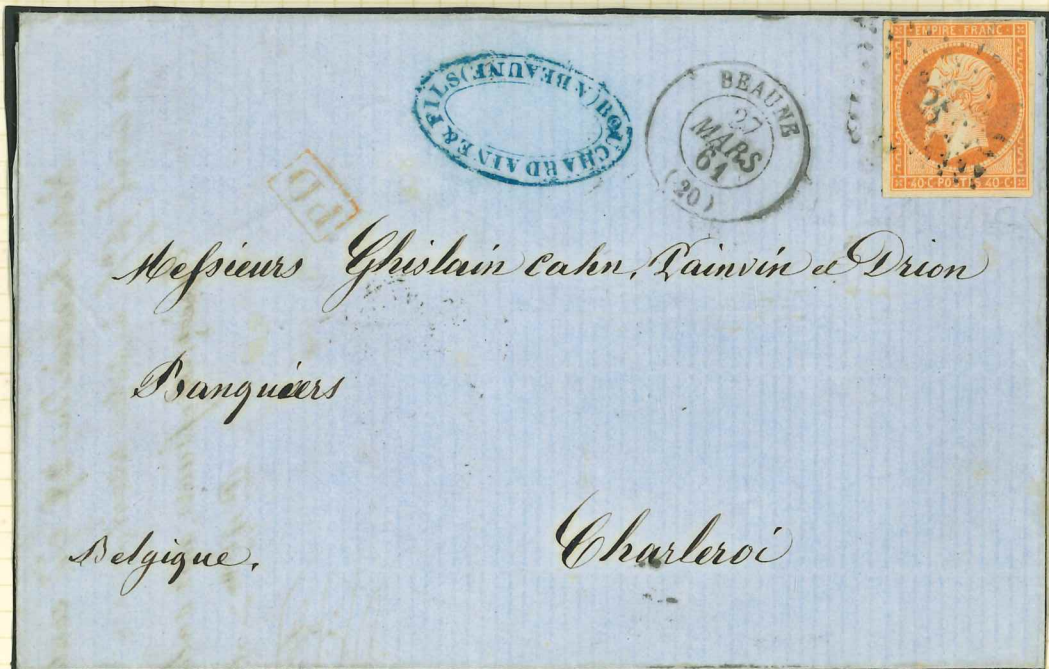 BOUCHARD AINE & FILS
(A BEAUNE)
BEAUNE
27
MARS
61
(20)
EMPIRE FRANC
40 C POSTES 40 C
PD
Messieurs Ghislain Cahn, Vainvin et Drion
Banquiers
Belgique.
Charleroi